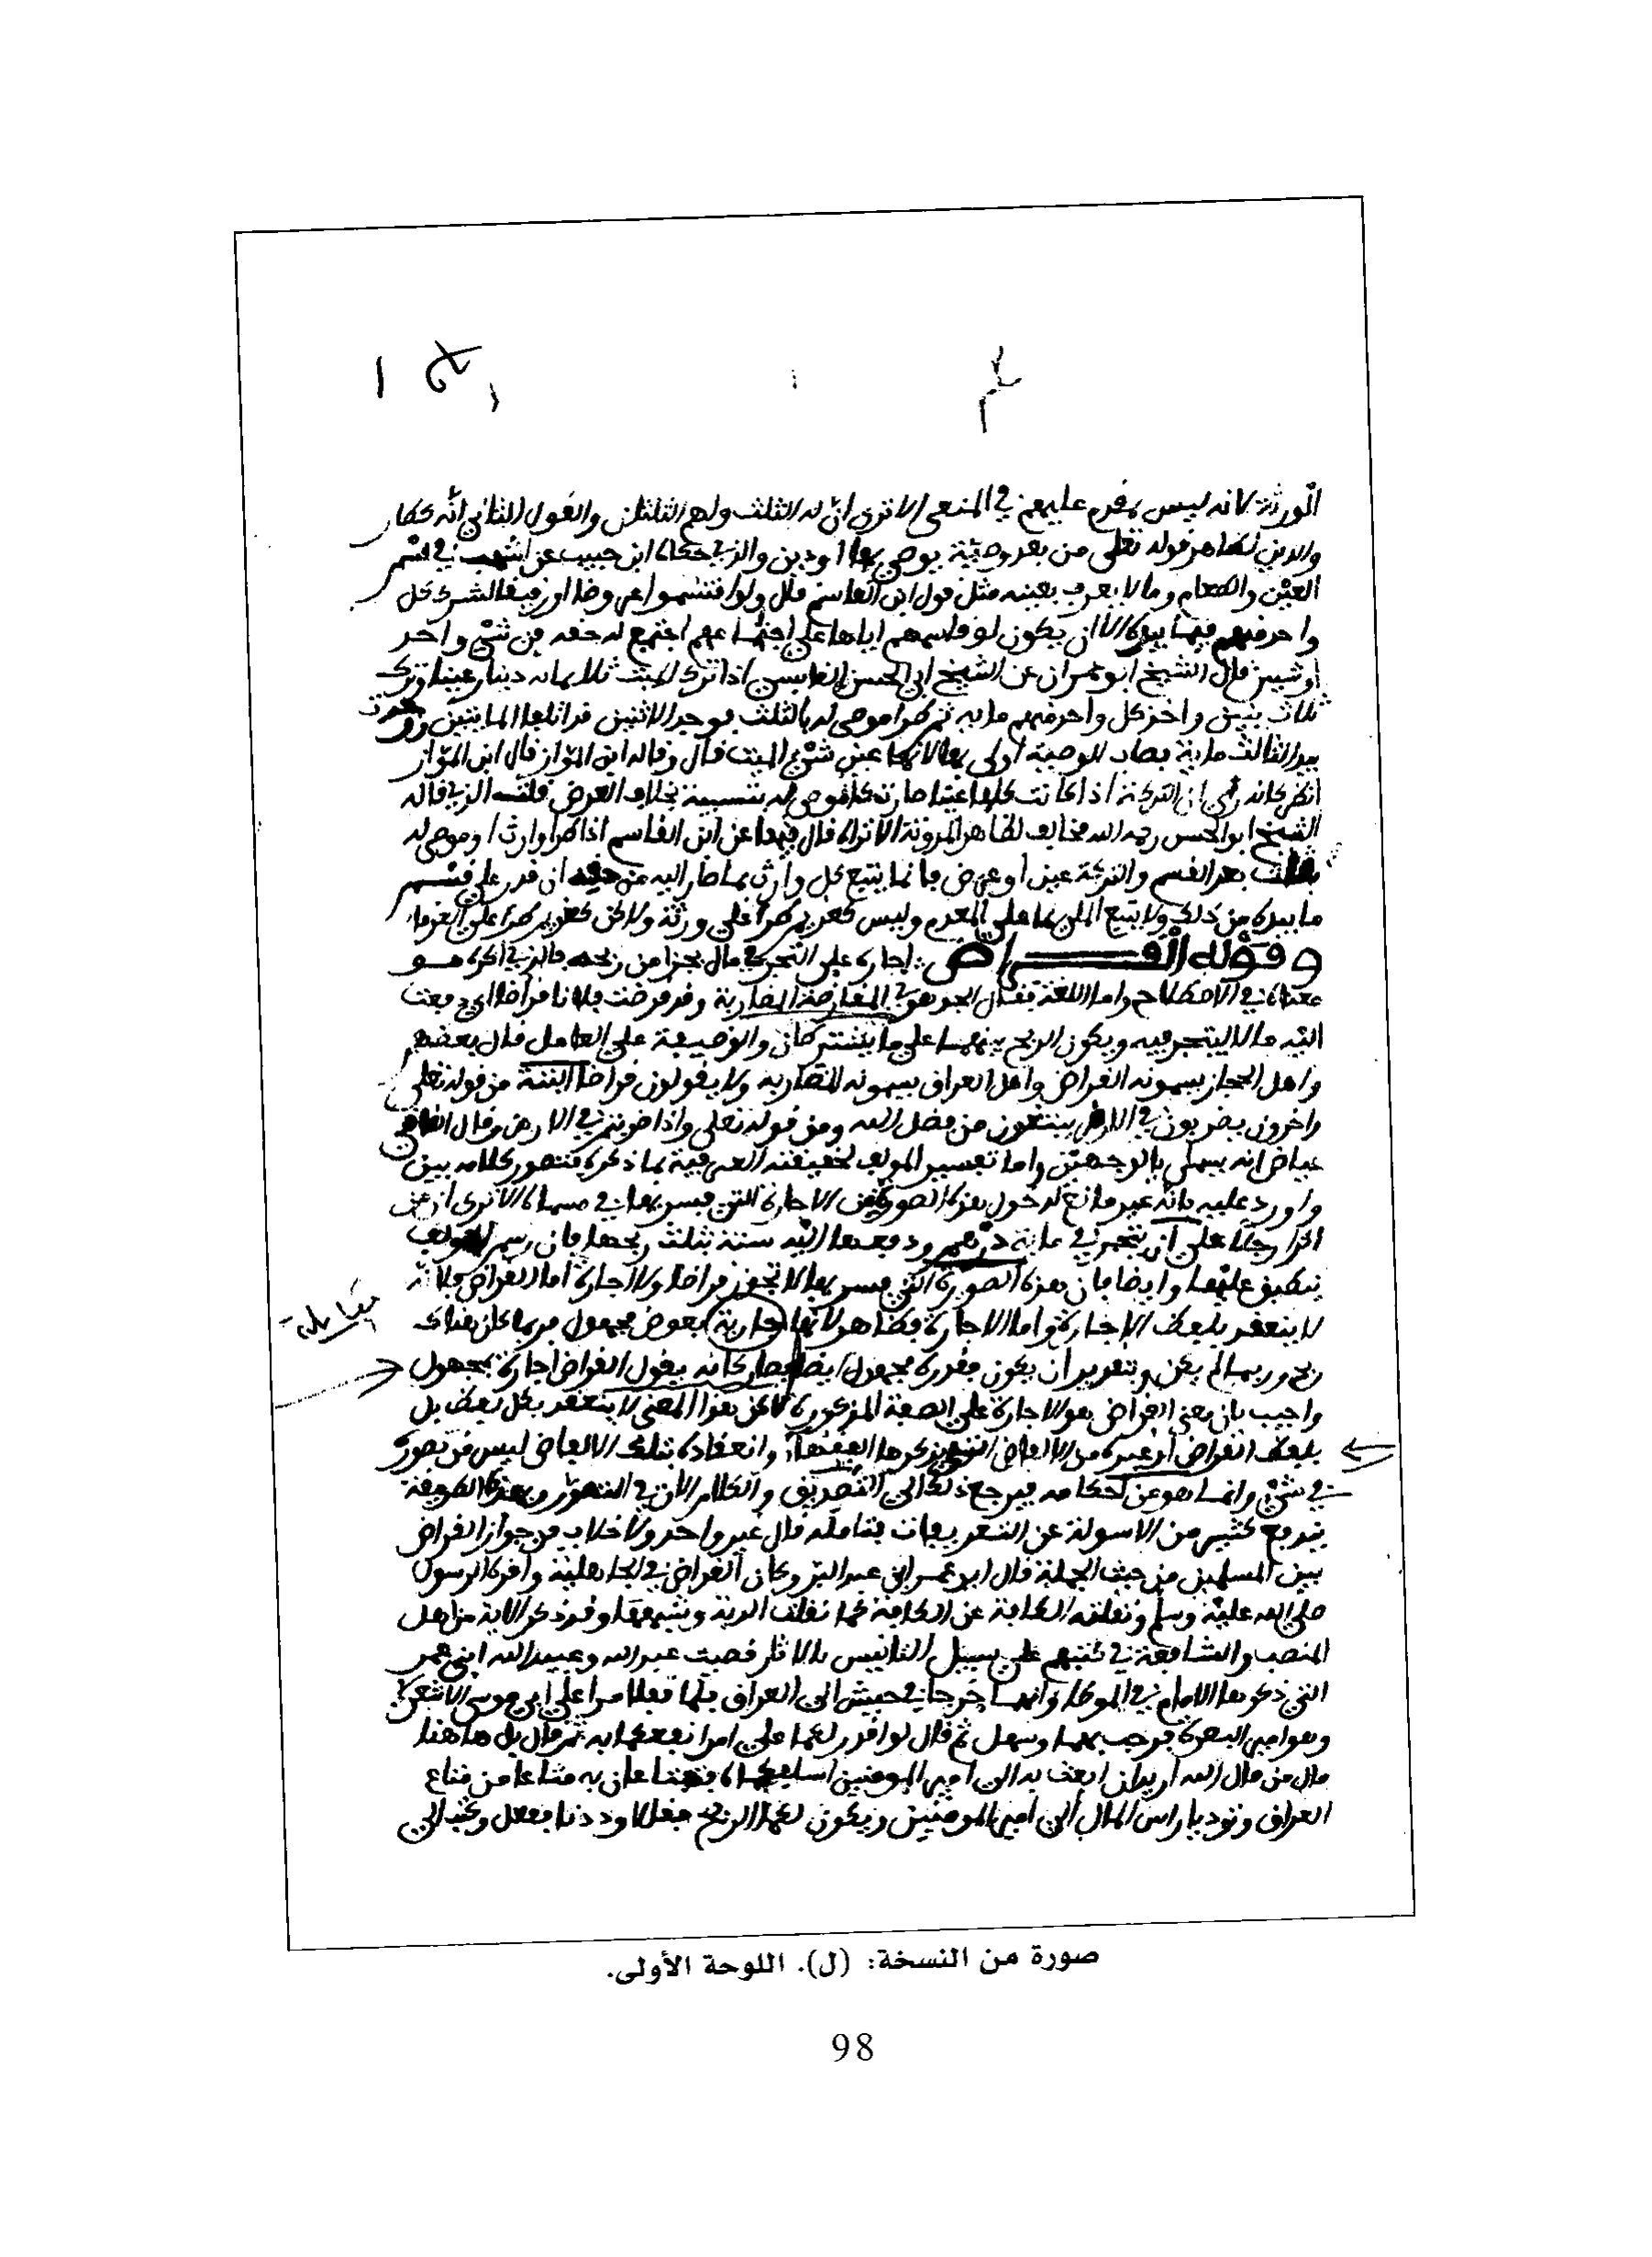 الورثة لانه ليس يقدم عليهم في المعنى الا ترى ان له الثلث ولهم الثلثان والقول الثاني انه كطار
والدين لظاهر قوله تعلى من بعد وصية يوصي بها او دين والذي حكاه ابن حبيب عن اشهب في قسم
العين والطعام وما لا يعرف بعينه مثل قول ابن القاسم قال ولو اقتسموا عروضا او رقيقا لشرك كل
واحد منهم فيما بيده الا ان يكون لو قاسمهم اياها على اجتماعهم اجتمع له حقه من شيء واحد
او شيين قال الشيخ ابو عمران عن الشيخ ابي الحسن القابسي اذا ترك الميت ثلاثماية دينار عينا وترك
ثلاث بنين واخذ كل واحد منهم ماية ثم طرا موصى له بالثلث فوجد الاثنين قد اتلفا المايتين
بيد الثالث ماية فصاحب الوصية اولى بها لانها عين شيء الميت قال وقاله ابن المواز قال ابن المواز
انظر كانه راى ان التركة اذا كانت كلها عينا صارت كالموصى له بتسمية بخلاف العرض قلت الذي قاله
الشيخ ابو الحسن رحمه الله مخالف لظاهر المدونة الا تراه قال فيها عن ابن القاسم اذا طرا وارث او موصى له
بثلث بعد القسم والتركة عين او عرض فانما يتبع كل وارث بما صار اليه من حقه ان قدر على قسم
ما بيده من ذلك ولا يتبع الملي بما على المعدم وليس كغريم طرا على ورثة ولكن كغريم طرا على الغرماء
وقوله القراض اجارة على التجر في مال بجزء من ربحه فالذي ذكره هو
معناه في الاصطلاح واما اللغة فقال الجوهري المقارضة المضاربة وقد قرضت فلانا قراضا اي دفعت
اليه مالا ليتجر فيه ويكون الربح بينهما على ما يشترطان والوضيعة على العامل قال بعضهم
واهل الحجاز يسمونه القراض واهل العراق يسمونه المضاربة ولا يقولون قراضا البتة من قوله تعلى
واخرون يضربون في الارض يبتغون من فضل الله ومن قوله تعلى واذا ضربتم في الارض وقال القاضي
عياض انه يسمى بالوجهين واما تفسير المولف لحقيقته العرفية بما ذكره فتصور كلامه بين
واورد عليه بانه غير مانع لدخول بعض الصور من الاجارة التي فسر بها في مسماه الا ترى ان من
اجر رجلا على ان يتجر في ماية درهم ودفعها اليه سنة بثلث ربحها فان رسم المولف
ينطبق عليها وايضا فان هذه الصورة التي فسر بها لا تجوز قراضا ولا اجارة اما القراض فلانه
لا ينعقد بلفظ الاجارة واما الاجارة فظاهر لانها اجارة بعوض مجهول فربما كان هناك
مقابلة
ربح وربما لم يكن وبتقدير ان يكون فقدره مجهول ايضا فصار كانه يقول القراض اجارة بمجهول
واجيب بان معنى القراض هو الاجارة على الصفة المذكورة لكن هذا المعنى لا ينعقد بكل لفظ بل
بلفظ القراض او غيره من الالفاظ التي يذكرها الفقهاء وانعقاده بتلك الالفاظ ليس من تصوره
في شيء وانما هو من احكامه فيرجع ذلك الى التصديق والكلام الان في التصور وبهذه الطريقة
يندفع كثير من الاسولة عن التعريفات فتامله قال غير واحد ولا خلاف في جواز القراض
بين المسلمين من حيث الجملة قال ابو عمر ابن عبد البر وكان القراض في الجاهلية واقره الرسول
صلى الله عليه وسلم ونقلته الكافة عن الكافة كما نقلت الدية وشبهها وقد ذكر الاية من اهل
المذهب والشافعية في كتبهم على سبيل التانيس بالاثار قصة عبد الله وعبيد الله ابني عمر
التي ذكرها الامام في الموطا وانهما خرجا في جيش الى العراق فلما قفلا مرا على ابي موسى الاشعري
وهو امير البصرة فرحب بهما وسهل ثم قال لو اقدر لكما على امر انفعكما به ثم قال بل ها هنا
مال من مال الله اريد ان ابعث به الى امير المومنين اسلفكماه فتبتاعان به متاعا من متاع
العراق وتوديا راس المال الى امير المومنين ويكون لكما الربح فقالا وددنا ففعل وكتب الى
صورة من النسخة: (ل). اللوحة الأولى.
98